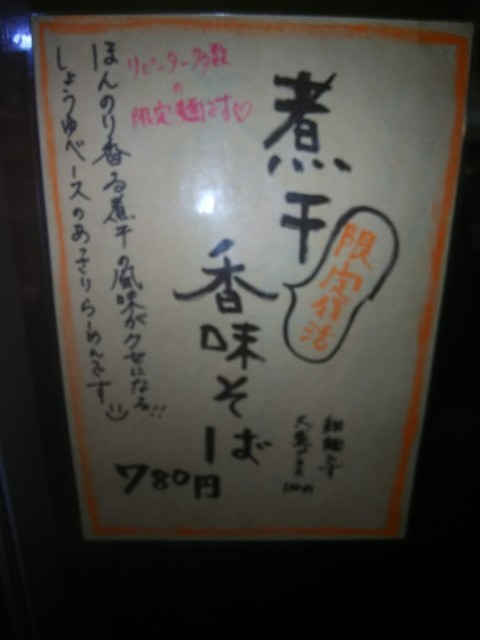 煮干
限定復活
香味そば
780円
細麺
大盛プラス
100円
リピーター多数
の
限定麺です♡
ほんのり香る煮干の風味がクセになる!!
しょうゆベースのあっさりらーめんです